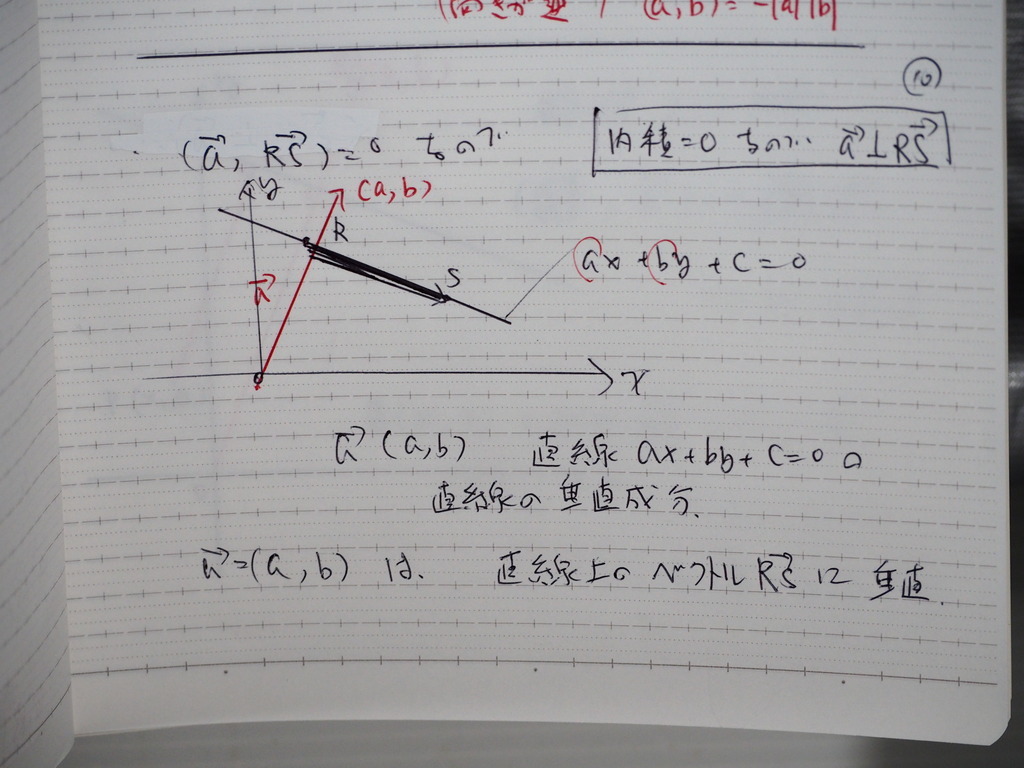 (向きが逆) (a,b)=-|a||b|
⑩
(a→, RS→)=0 なので
内積=0 なので a→⊥RS→
y
(a,b)
R
ax+by+c=0
S
a→
0
x
a→(a,b) 直線 ax+by+c=0の
直線の垂直成分.
a→=(a,b) は. 直線上のベクトルRS→に垂直.